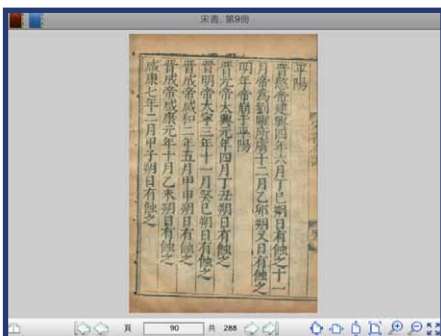 宋書. 第9冊
平陽
晉愍帝建興四年六月丁巳朔日有蝕之十一
月帝爲劉曜所虜十二月乙卯朔又日有蝕之
明年帝崩于平陽
晉元帝太興元年四月丁丑朔日有蝕之
晉明帝太寧三年十一月癸巳朔日有蝕之
晉成帝咸和二年五月甲申朔日有蝕之
晉成帝咸康元年十月乙未朔日有蝕之
咸康七年二月甲子朔日有蝕之
頁 90 共 288